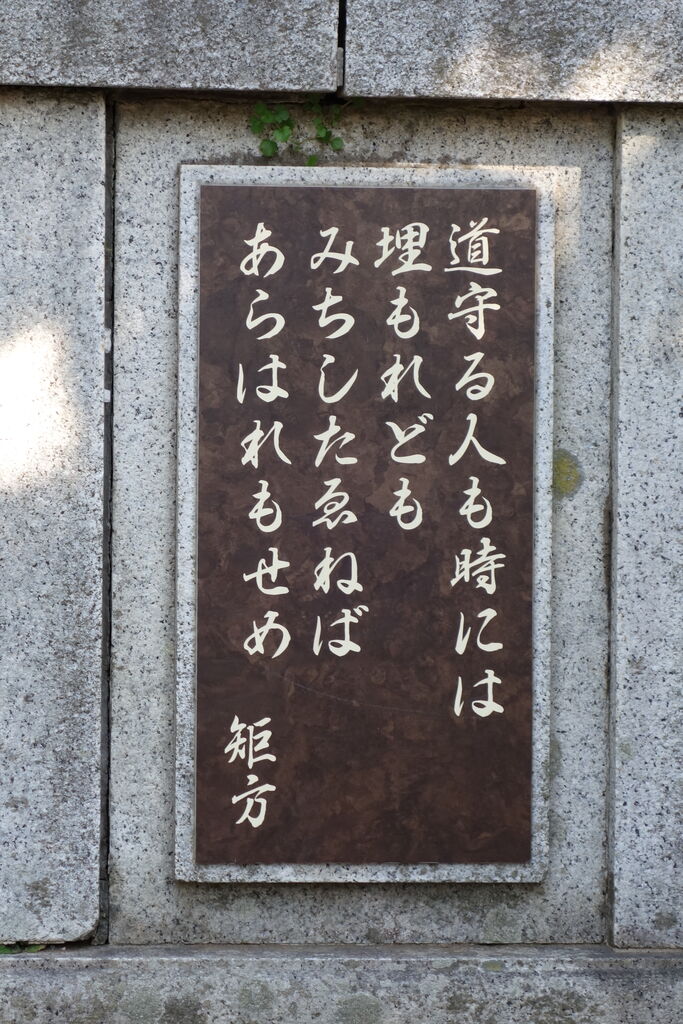 道守る人も時には
埋もれども
みちしたゑねば
あらはれもせめ
矩方